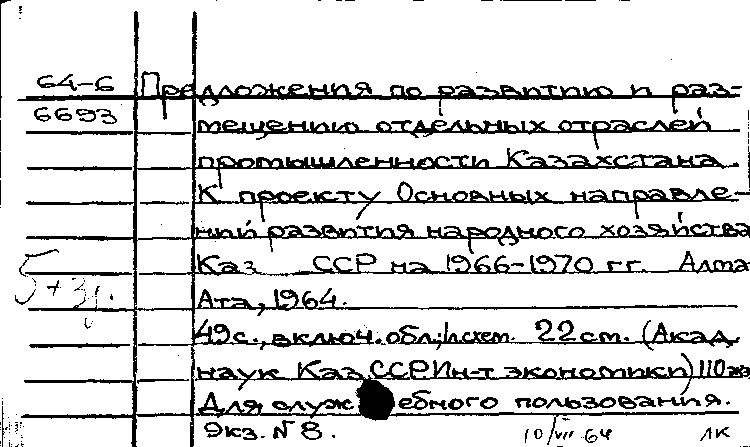 64-6 Предложения по развитию и раз-
6693 мещению отдельных отраслей
промышленности Казахстана.
К проекту Основных направле-
ний развития народного хозяйства
Каз ССР на 1966-1970 гг. Алма
Ата, 1964.
49с., включ. обл; 1 схем. 22 cm. (Акад.
наук Каз ССР Ин-т экономики) 110 экз
Для служебного пользования.
Экз. № 8. 10/VII 64 ЛК